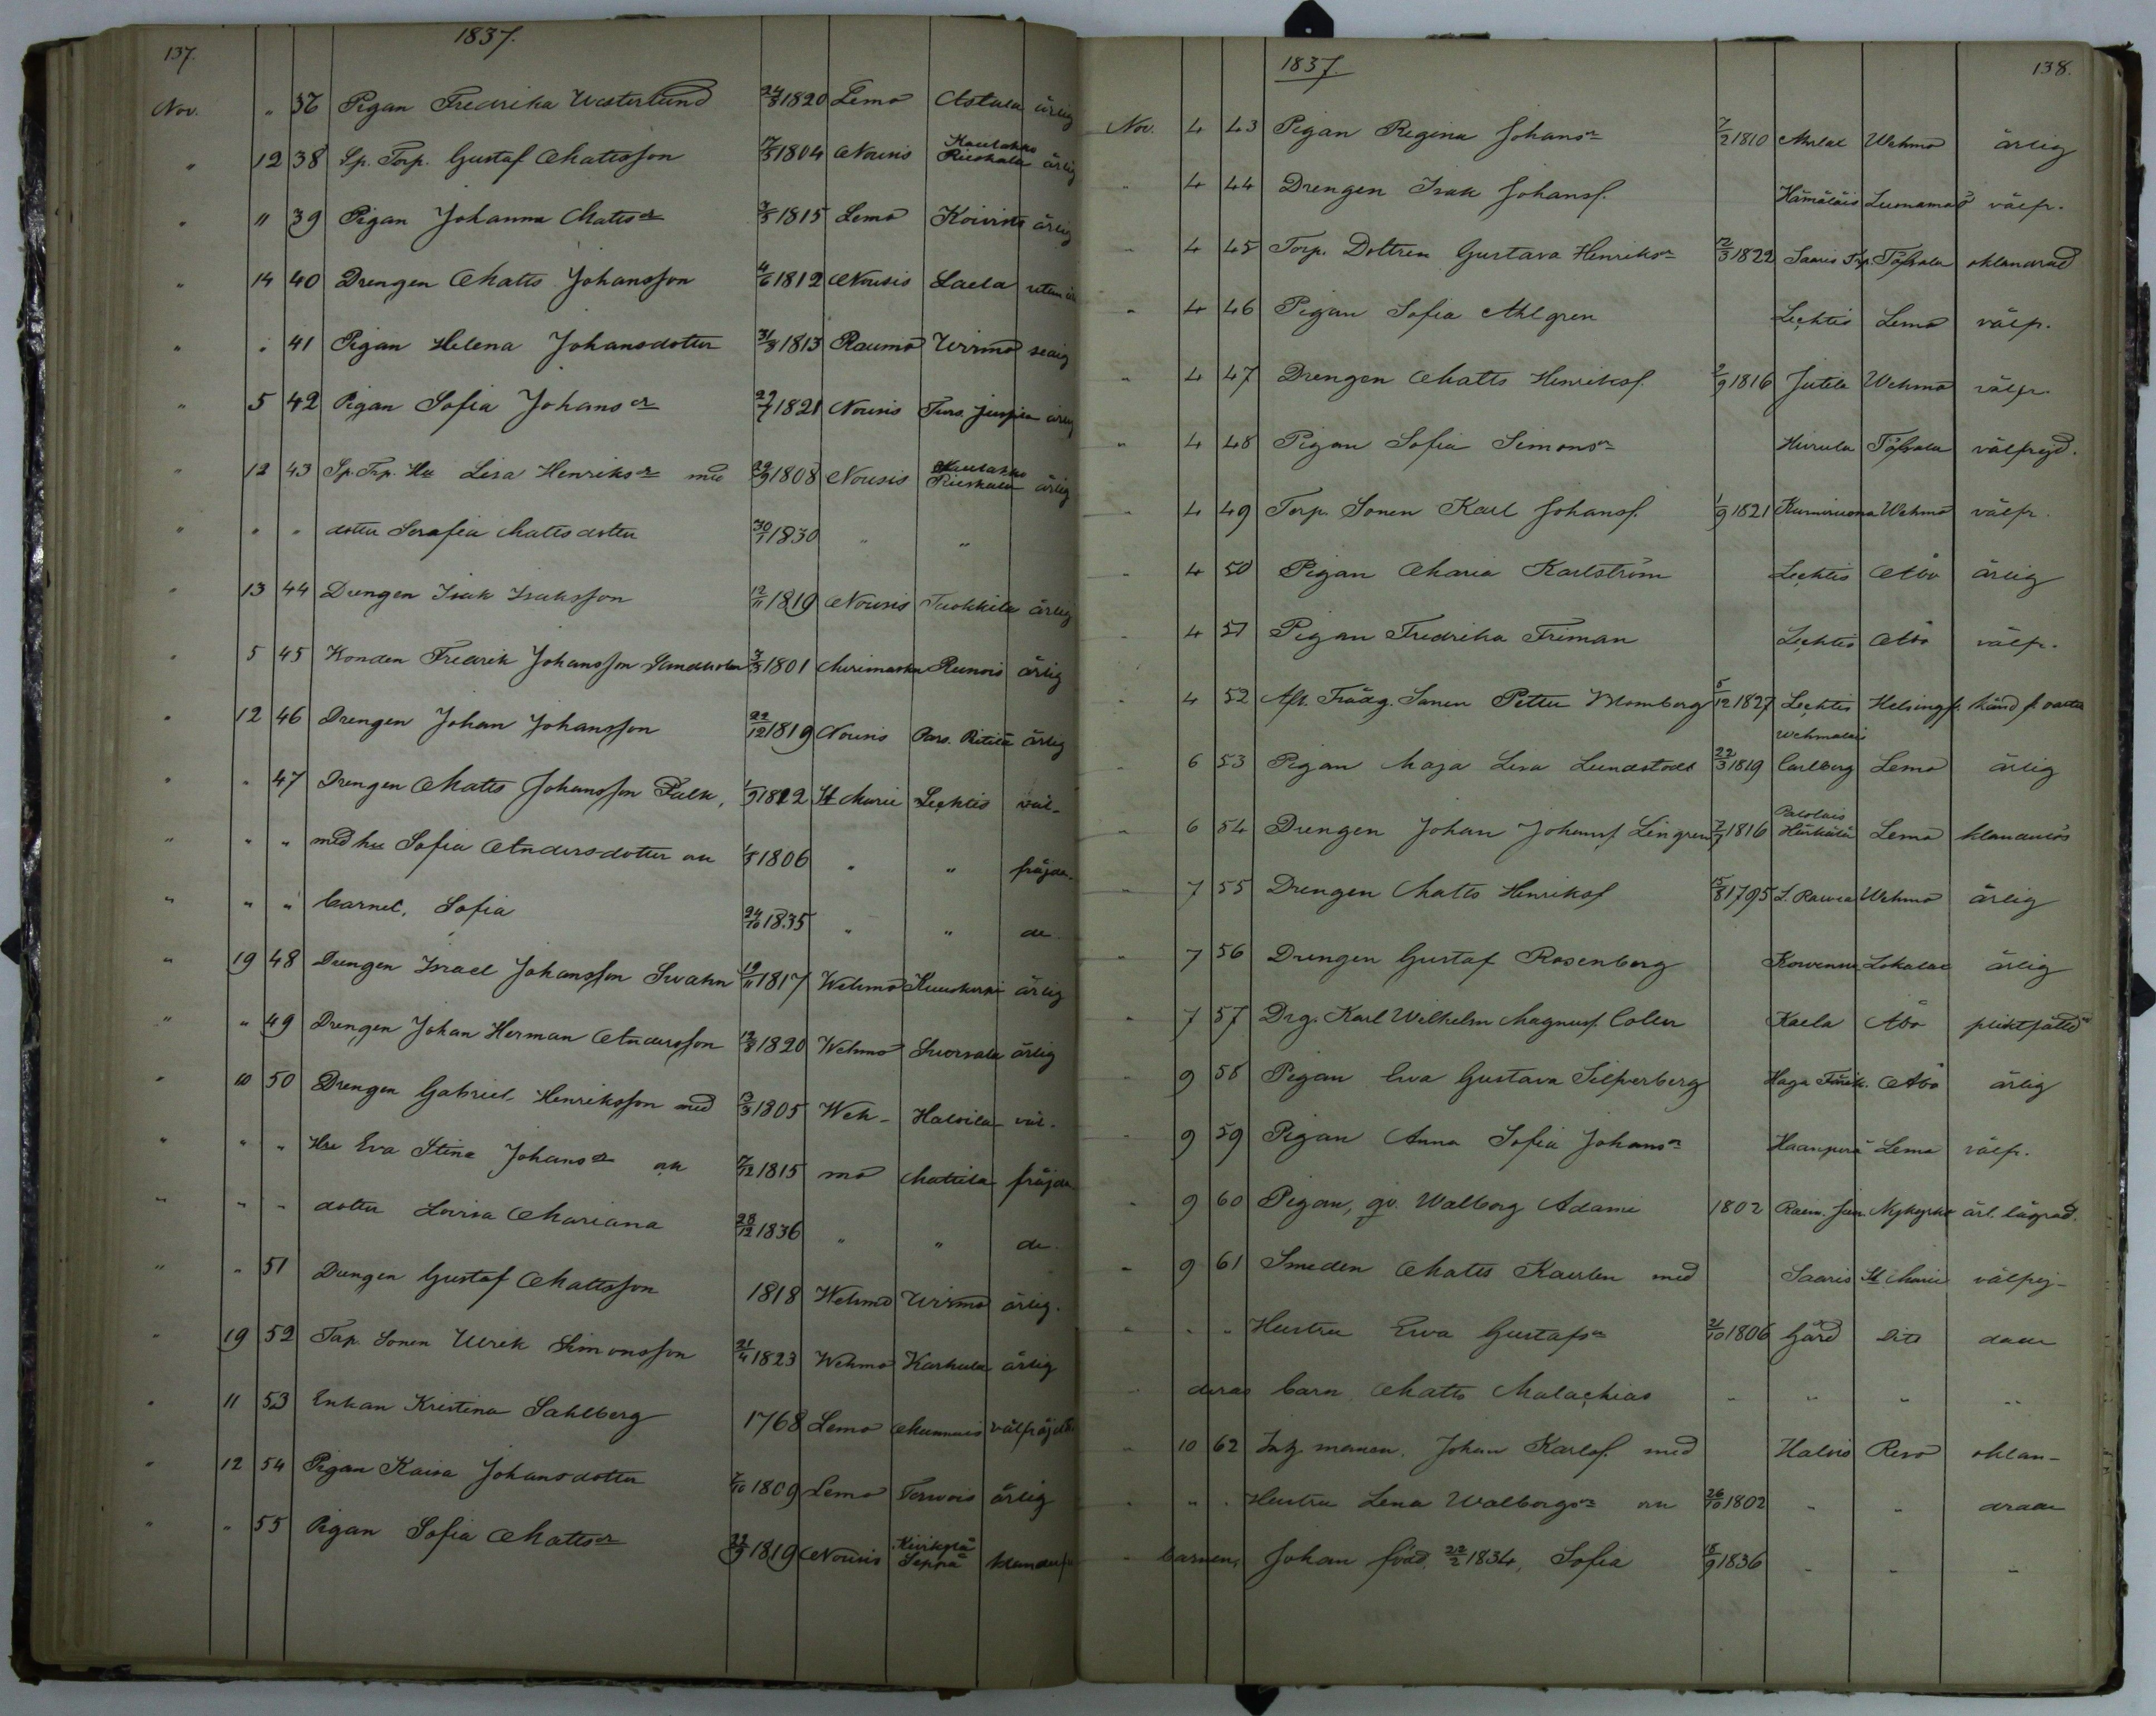 137.
1837.
Nov. " 36 Pigan Fredrika Westerlund 24/8 1820 Lemo Astala ärlig
" 12 38 Sp. Torp. Gustaf Mattsson 17/5 1804 Nousis Kaulakko Rieskala ärlig
" 11 39 Pigan Johanna Mattsdr 3/5 1815 Lemo Koivisto ärlig
" 14 40 Drengen Matts Johansson 4/6 1812 Nousis Laela utan
" " 41 Pigan Helena Johansdotter 31/8 1813 Raumo Wirmo
" 5 42 Pigan Sofia Johansdr 29/7 1821 Nousis Turs. juspia ärlig
" 12 43 Sp. Trp. Hu Lisa Henriksdr med 29/9 1808 Nousis Kaulakko Rieskala ärlig
" " " dotter Serafia Mattsdotter 30/1 1830 " "
" 13 44 Drengen Isak Isaksson 12/11 1819 Nousis Tuokkila ärlig
" 5 45 Konden Fredrik Johansson Sandholm 3/3 1801 Merimasku Runois ärlig
" 12 46 Drengen Johan Johansson 22/12 1819 Nousis Pars. Ritilä ärlig
" " 47 Drengen Matts Johansson Falk, 1/9 1812 St Marie Leçhtis väl-
" " " med hu Sofia Andersdotter an 1/5 1806 " " fräjda.
" " " barnet, Sofia 24/10 1835 " " de
" 19 48 Drengen Israel Johansson Swahn 19/11 1817 Wehmo Kuuskorpi ärlig
" " 49 Drengen Johan Herman Andersson 12/8 1820 Wehmo Suorsala ärlig
" 10 50 Drengen Gabriel Henriksson med 9/3 1805 Weh- Halsila väl-
" " " Hu Eva Stina Johansdr an 7/12 1815 mo Mattila fräjda
" " " dotter Lovisa Mariana 28/12 1836 " " de.
" " 51 Drengen Gustaf Mattsson 1818 Wehmo Wirmo ärlig.
" 19 52 Torp. Sonen Ulrik Simonsson 21/4 1823 Wehmo Karhula ärlig
" 11 53 Enkan Kristina Sahlberg 1768 Lemo Munnuis välfräjdd
" 12 54 Pigan Kaisa Johansdotter 7/10 1809 Lemo Terwois ärlig
" " 55 Pigan Sofia Mattsdr 22/9 1819 Nousis Kiirkylä Seppä
1837.
138.
Nov. 4 43 Pigan Regina Johansdr 7/2 1810 Ahlal Wehmo ärlig
" 4 44 Drengen Isak Johansf. Hämäläis Luonnamaa välfr.
" 4 45 Torp. Dottren Gustava Henriksdr 12/3 1822 Saaris Trp. Töfsala oklandrad
" 4 46 Pigan Sofia Ahlgren Leçhtis Lemo välfr.
" 4 47 Drengen Matts Henriksf. 2/9 1816 Jutila Wehmo välfr.
" 4 48 Pigan Sofia Simonsdr Hirula Töfsala välfrejd.
" 4 49 Torp. Sonen Karl Johansf. 1/9 1821 Kurmiruona Wehmo välfr.
" 4 50 Pigan Maria Karlström Leçhtis Abo ärlig
" 4 51 Pigan Fredrika Friman Leçhtis Abo välfr.
" 4 52 Afl. Trädg. Sonen Petter Blomberg 5/12 1827 Leçhtis Helsingf. känd f.
" 6 53 Pigan Maja Lisa Lundstedt 22/3 1819 Wehmalais Carlberg Lemo ärlig
" 6 54 Drengen Johan Johansf Lingren 2/7 1816 Palolais Härkälä Lemo klanderlös
" 7 55 Drengen Matts Henriksf 15/8 1795 L. Rawea Wehmo ärlig
" 7 56 Drengen Gustaf Rosenberg Korvensu Lokalax ärlig
" 7 57 Drg. Karl Wilhelm Magnusf. Colen Kaela Åbo pliktfälld
" 9 58 Pigan Ewa Gustava Silfverberg Haga Fäsik. Åbo ärlig
" 9 59 Pigan Anna Sofia Johansdr Haanperä Lemo välfr.
" 9 60 Pigan, qv. Walborg Adami 1802 Raum. Jun. Nykyrko ärl. lägrad.
" 9 61 Smeden Matts Kaulen med Saaris St Marie välfrej-
" " " Hustru Ewa Gustafsdr 21/10 1806 Gård Dito dade
" deras barn Matts Malaçhias " " " "
" 10 62 Inh. mannen. Johan Karlsf. med Halois Reso oklan-
" " " Hustru Lena Walborgsdr an 26/10 1802 " " drade
" barnen, Johan född 22/2 1834, Sofia 18/9 1836 " " "